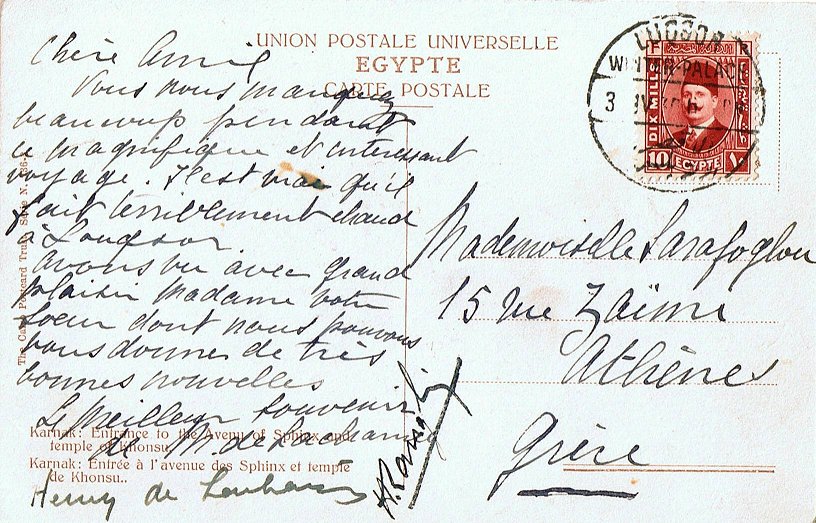 UNION POSTALE UNIVERSELLE
EGYPTE
CARTE POSTALE
Chère Amie
Vous nous manquez
beaucoup pendant
ce magnifique et interessant
voyage. Il est vrai qu'il
fait terriblement chaud
à Louqsor
Avons vu avec grand
plaisir Madame votre
soeur dont nous pouvons
vous donner de très
bonnes nouvelles
Le meilleur souvenir
de M. de
Henry de
Mademoiselle Sarafoglou
15 rue Zaïmi
Athènes
Grèce
LUCSOR
WINTER-PALACE
DIX MILL
10
EGYPTE
١٠
The Cairo Postcard Trust, Serie N.
Karnak: Entrance to the Avenu of Sphinx and
temple of Khonsu.
Karnak: Entrée à l'avenue des Sphinx et temple
de Khonsu..